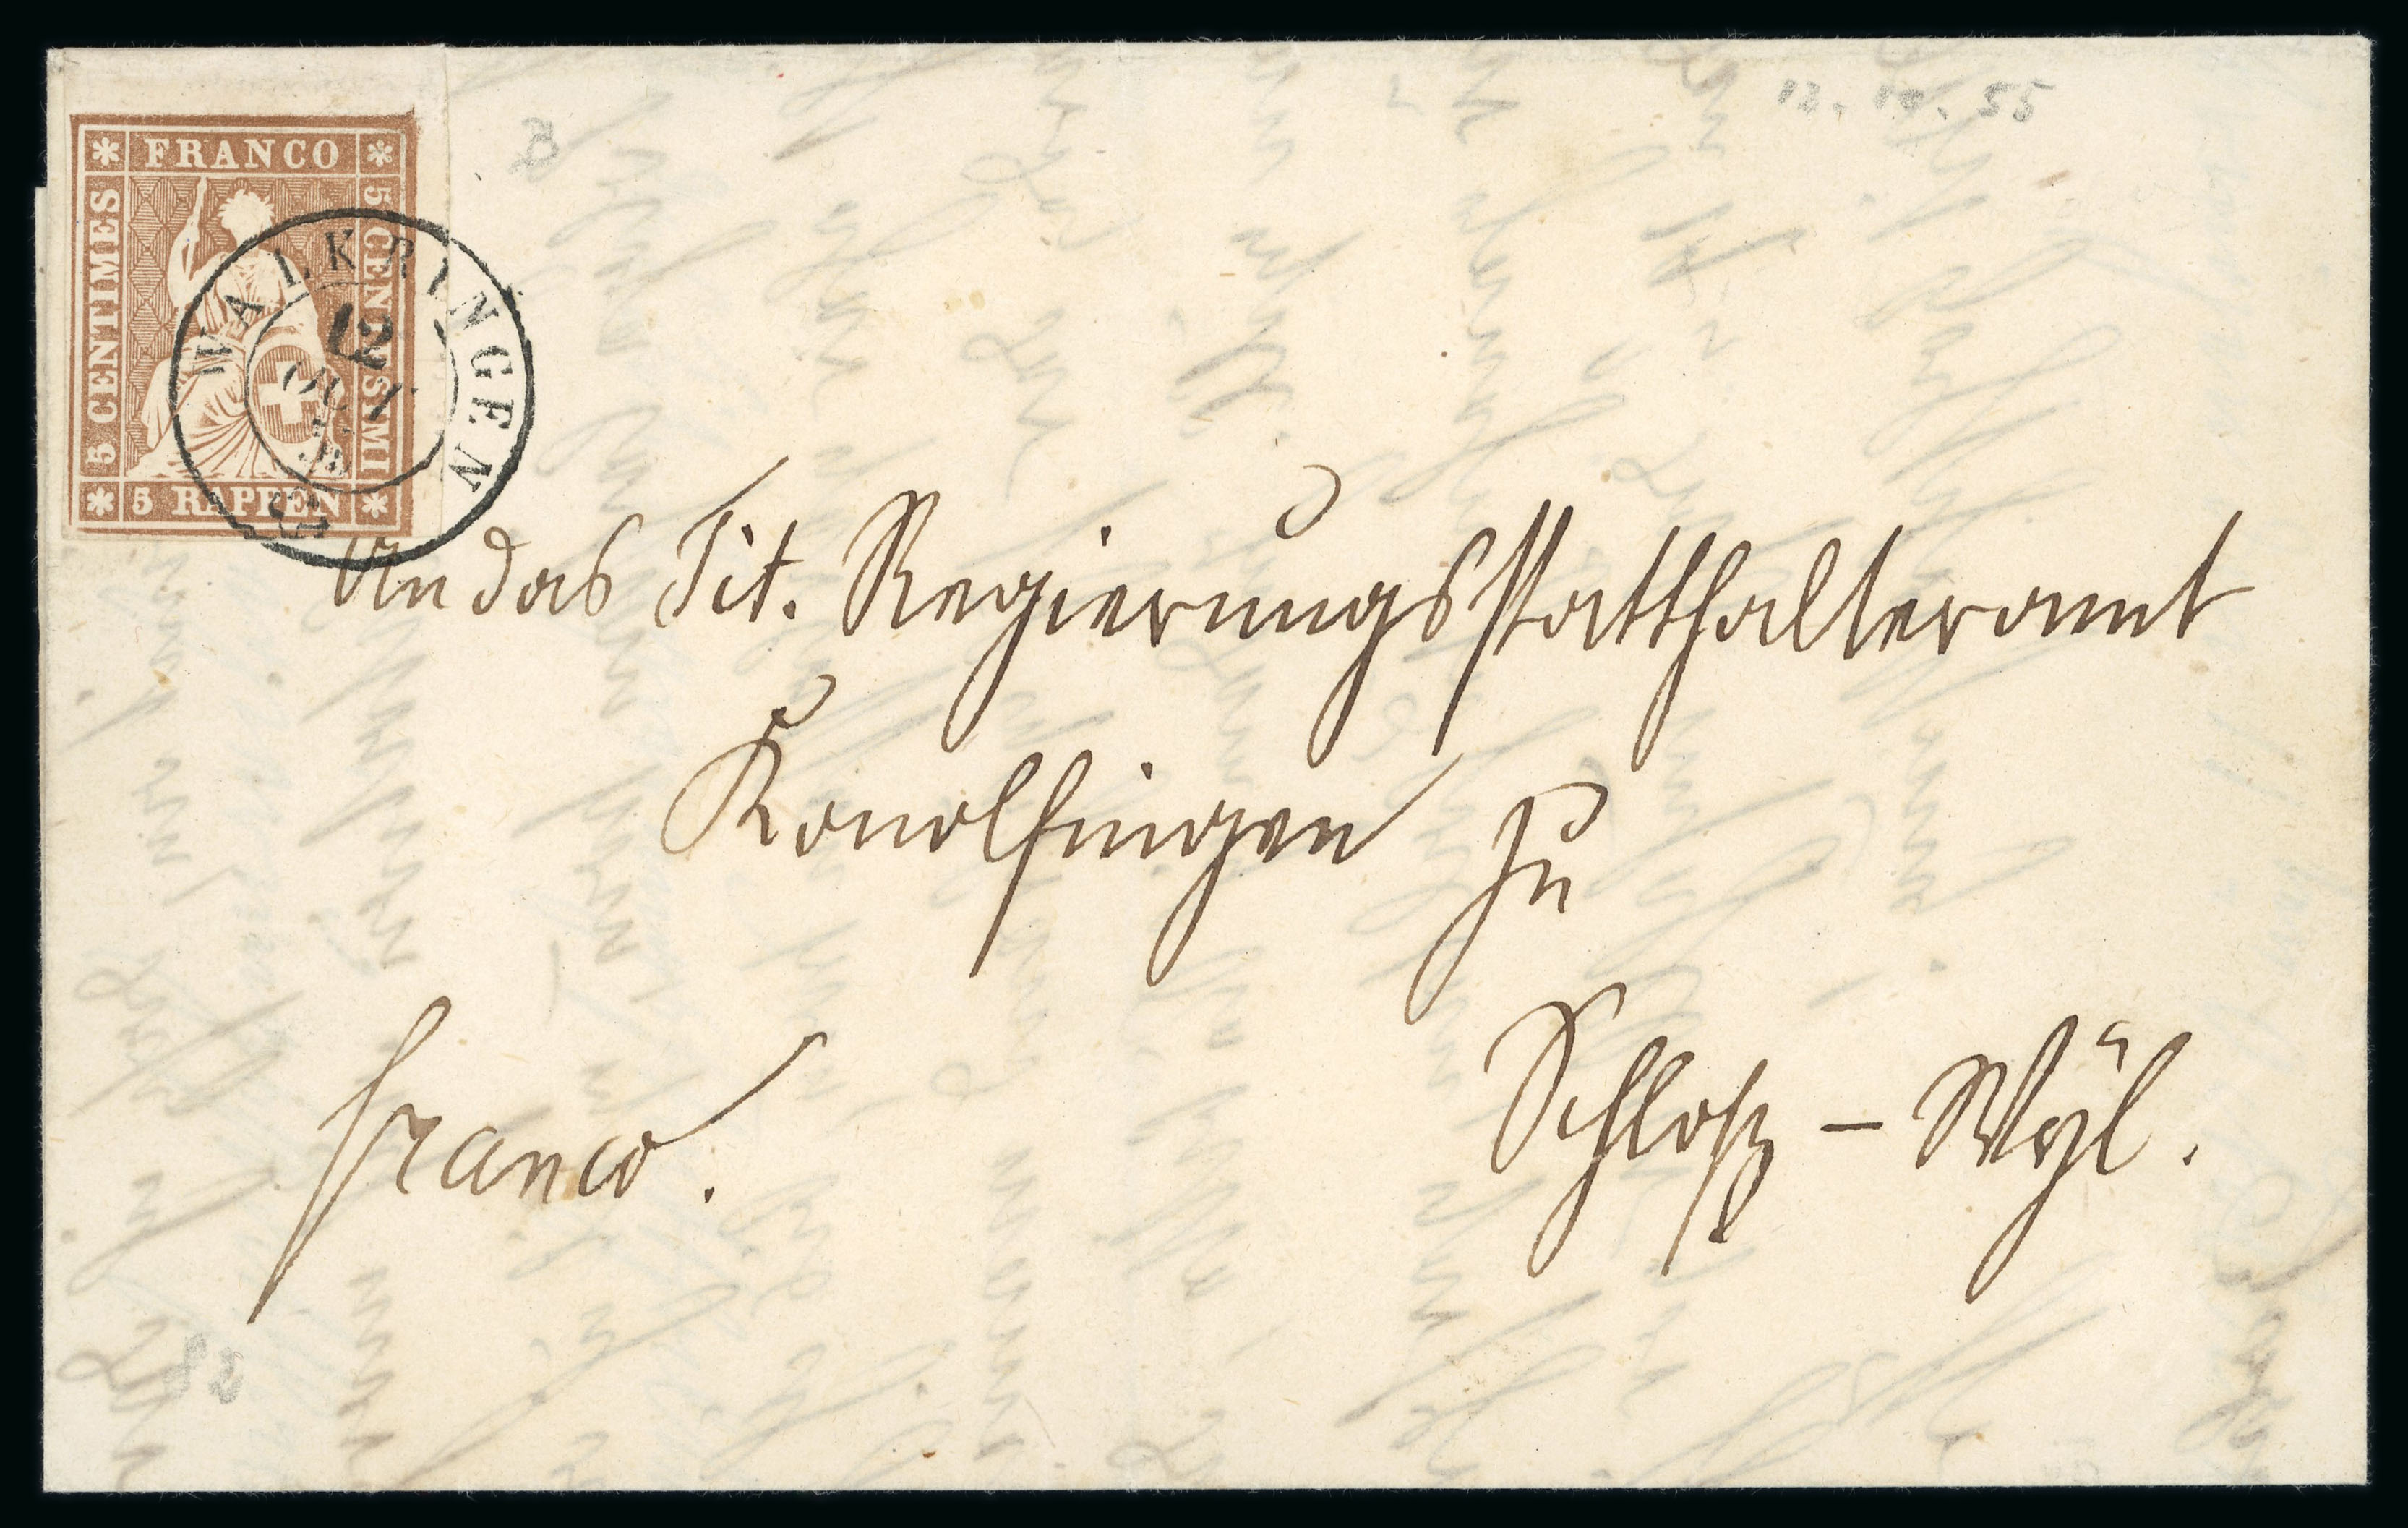 FRANCO
5 CENTIMES
5 CENTESIMI
5 RAPPEN
WALKRINGEN
12
OCT
12. 10. 55
B
An das Tit. Regierungsstatthalteramt
Konolfingen zu
Schloß - Wÿl.
franco.
82